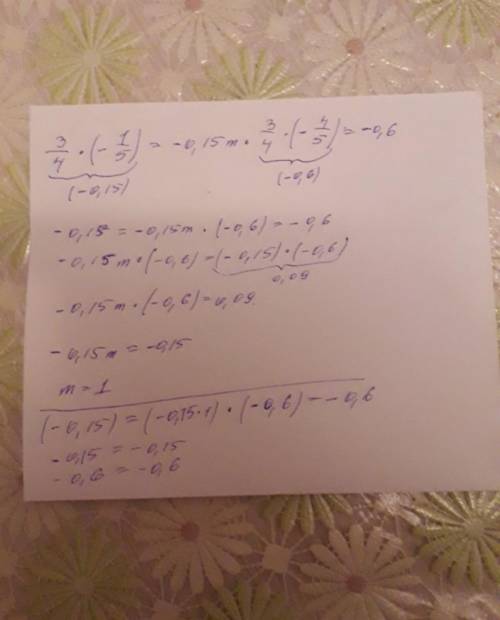 3/4 · (- 1/5) = -0,15m · 3/4 · (- 4/5) = -0,6
(-0,15) (-0,6)
-0,15 = -0,15m · (-0,6) = -0,6
-0,15m · (-0,6) = (-0,15) · (-0,6)
0,09
-0,15m · (-0,6) = 0,09
-0,15m = -0,15
m = 1
(-0,15) = (-0,15·1) · (-0,6) = -0,6
-0,15 = -0,15
-0,6 = -0,6